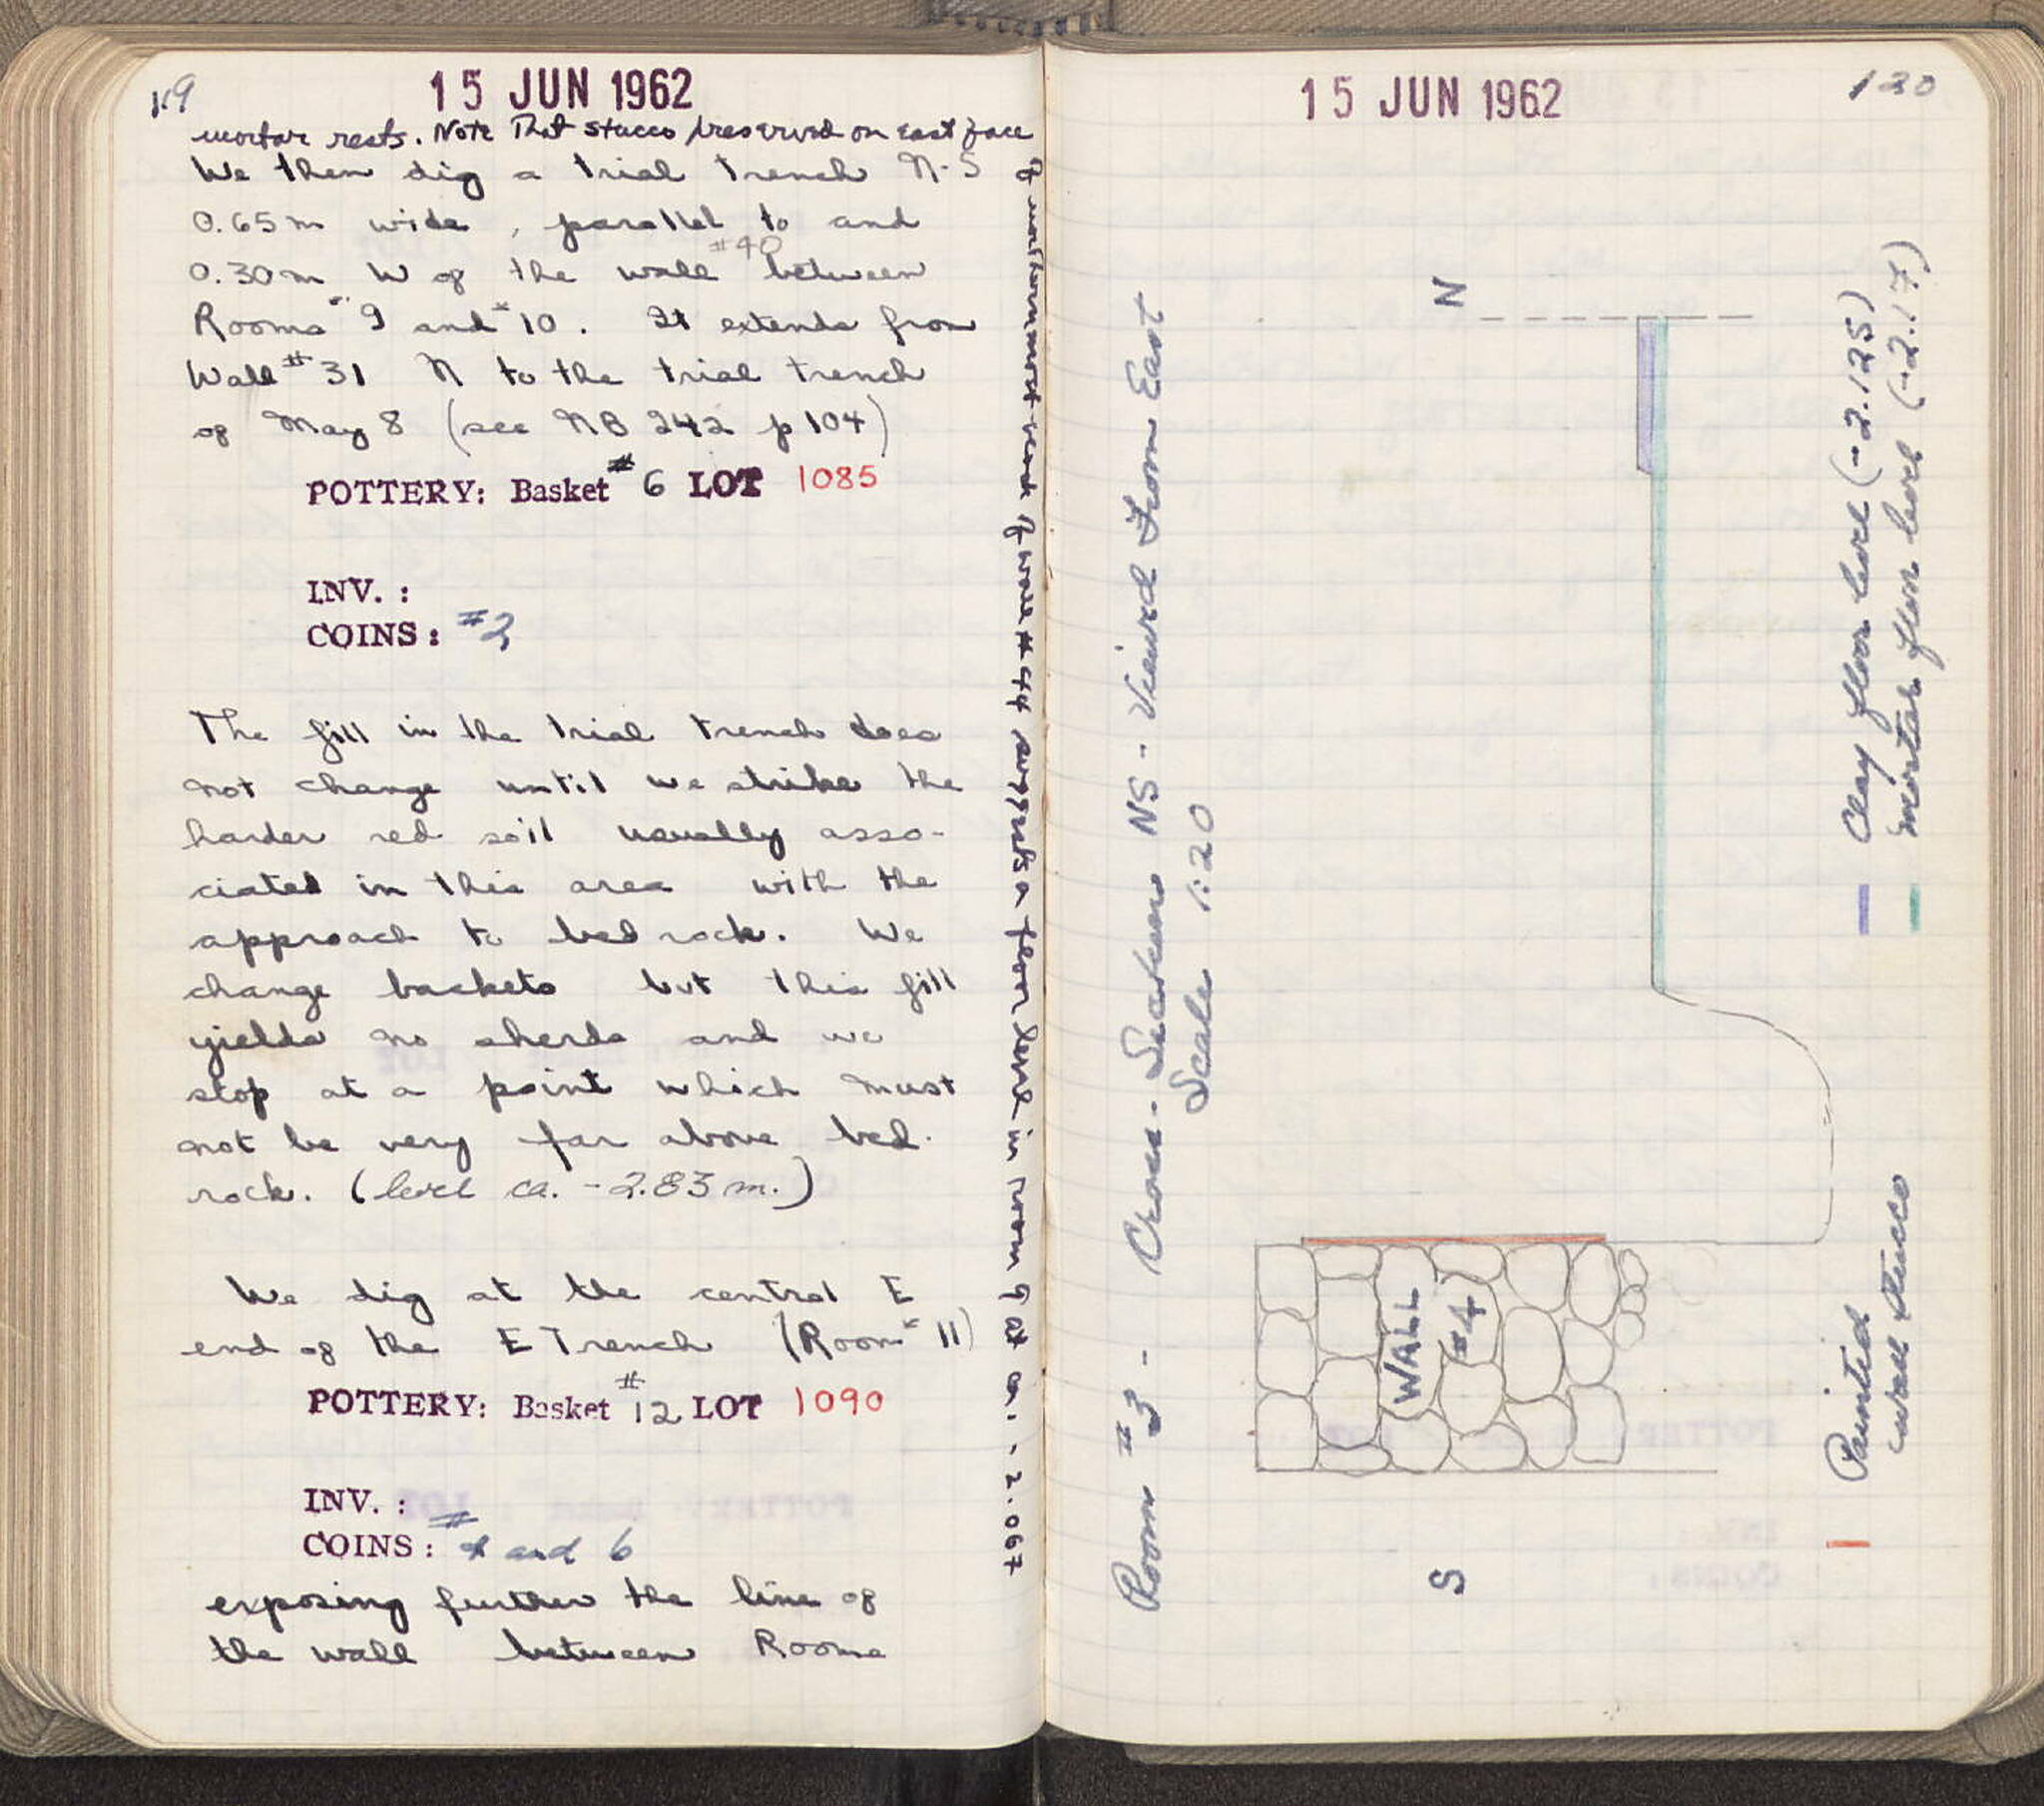 119
15 JUN 1962
mortar rests. Note that stucco preserved on east face
of northernmost part of wall #44 suggests a floor level in room 9 at ca. -2.067
We then dig a trial trench N-S
0.65m wide, parallel to and
0.30m W of the wall #40 between
Rooms #9 and #10. It extends from
Wall #31 N to the trial trench
of May 8 (see NB 242 p 104)
POTTERY: Basket #6 LOT 1085
INV. :
COINS: #2
The fill in the trial trench does
not change until we strike the
harder red soil usually asso-
ciated in this area with the
approach to bed rock. We
change baskets but this fill
yields no sherds and we
stop at a point which must
not be very far above bed-
rock. (level ca. -2.83 m.)
We dig at the central E
end of the E Trench (Room #11)
POTTERY: Basket #12 LOT 1090
INV. :
COINS: # and 6
exposing further the line of
the wall between Rooms
15 JUN 1962
120
Room #3 - Cross-Sections NS - Viewed From East
Scale 1:20
N
S
WALL
#4
Clay floor level (-2.125)
mortar floor level (-2.17)
Painted
wall stucco